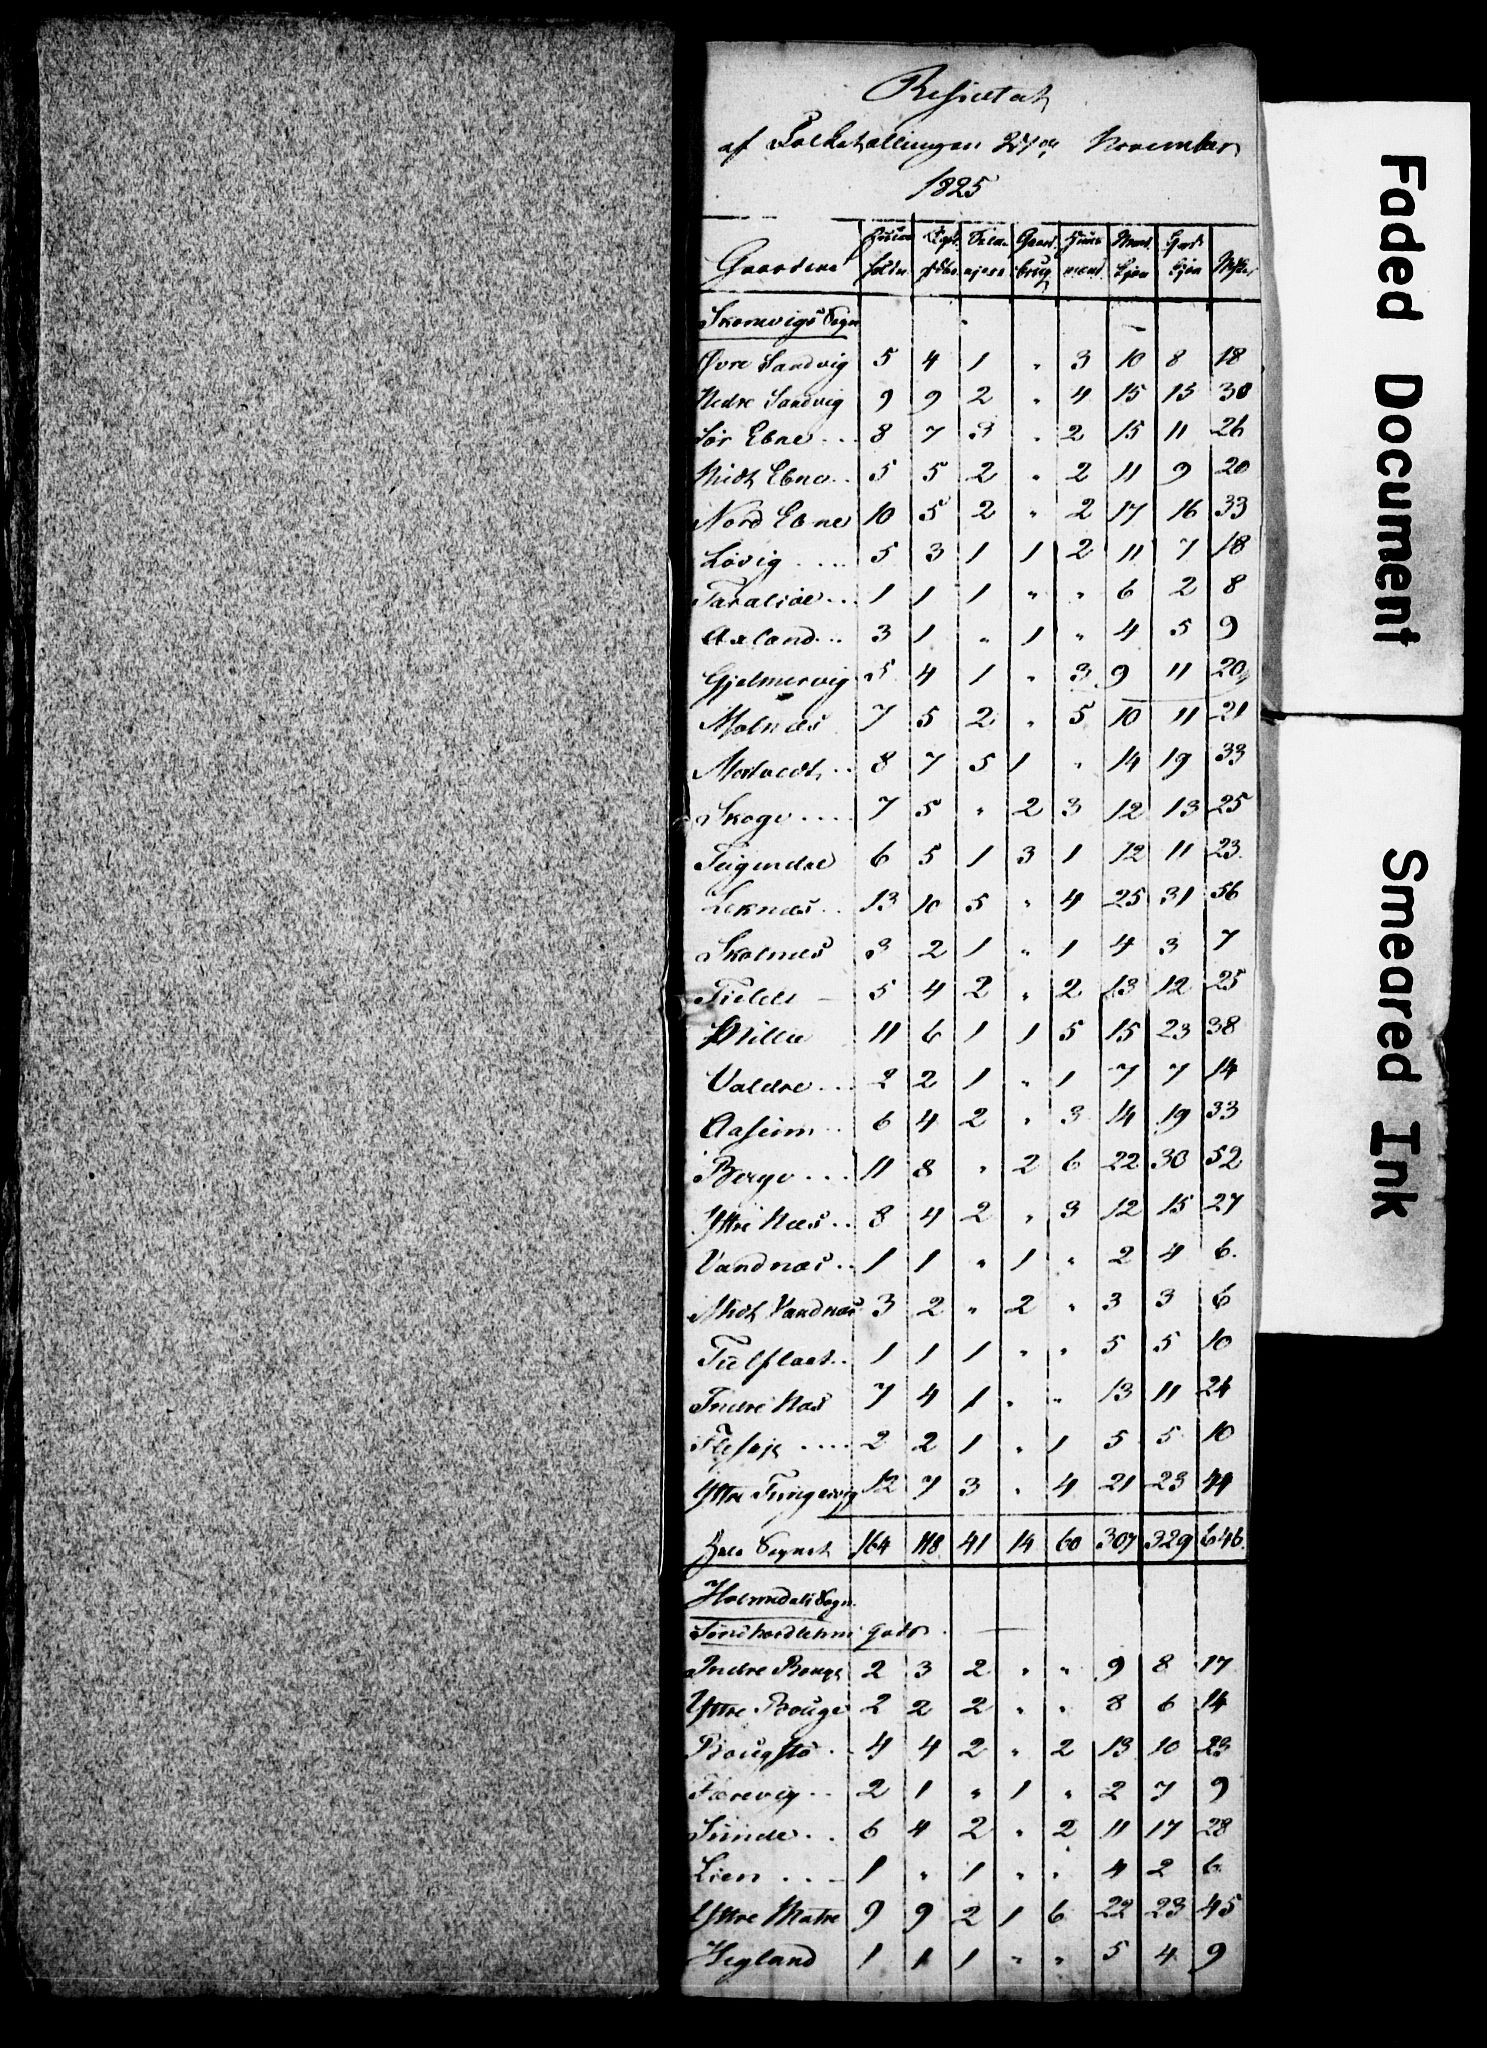 Resultat
af Folketællingen 27de November
1825
Gaardene
Skonevigs Sogn
Øvre Sandvig 5 4 1 " 3 10 8 18
Nedre Sandvig 9 9 2 " 4 15 15 30
Sør Ebne 8 7 3 " 2 15 11 26
Midt Ebne 5 5 2 " 2 11 9 20
Nord Ebne 10 5 2 " 2 17 16 33
Løvig 5 3 1 1 2 11 7 18
Taraldøe 1 1 1 " " 6 2 8
Axland 3 1 " 1 " 4 5 9
Gjelmervig 5 4 1 " 3 9 11 20
Molnæs 7 5 2 " 5 10 11 21
Mortvedt 8 7 5 1 " 14 19 33
Skoge 7 5 " 2 3 12 13 25
Teigendal 6 5 1 3 1 12 11 23
Leknæs 13 10 5 " 4 25 31 56
Skolnæs 3 2 1 " 1 4 3 7
Tielde 5 4 2 " 2 13 12 25
Millie 11 6 1 1 5 15 23 38
Valdre 2 2 1 " 1 7 7 14
Aaseim 6 4 2 " 3 14 19 33
Berge 11 8 " 2 6 22 30 52
Yttre Næs 8 4 2 " 3 12 15 27
Vandnæs 1 1 " 1 " 2 4 6
Midt Vandnæs 3 2 " 2 " 3 3 6
1 1 1 " " 5 5 10
Indre Næs 7 4 1 " " 13 11 24
2 2 1 " 1 5 5 10
Yttre Tungesvig 12 7 3 " 4 21 23 44
Hele Sognet 164 118 41 14 60 307 329 646
Holmedals Sogn
Søndhordlehns Gods
Indre Bouge 2 3 2 " " 9 8 17
Yttre Bouge 2 2 2 " " 8 6 14
Bougstø 4 4 2 " 2 13 10 23
Færevig 2 1 " 1 " 2 7 9
Sunde 6 4 2 " 2 11 17 28
Lien 1 " 1 " " 4 2 6
Yttre Matre 9 9 2 1 6 22 23 45
Hegland 1 1 1 " " 5 4 9
Faded Document
Smeared Ink